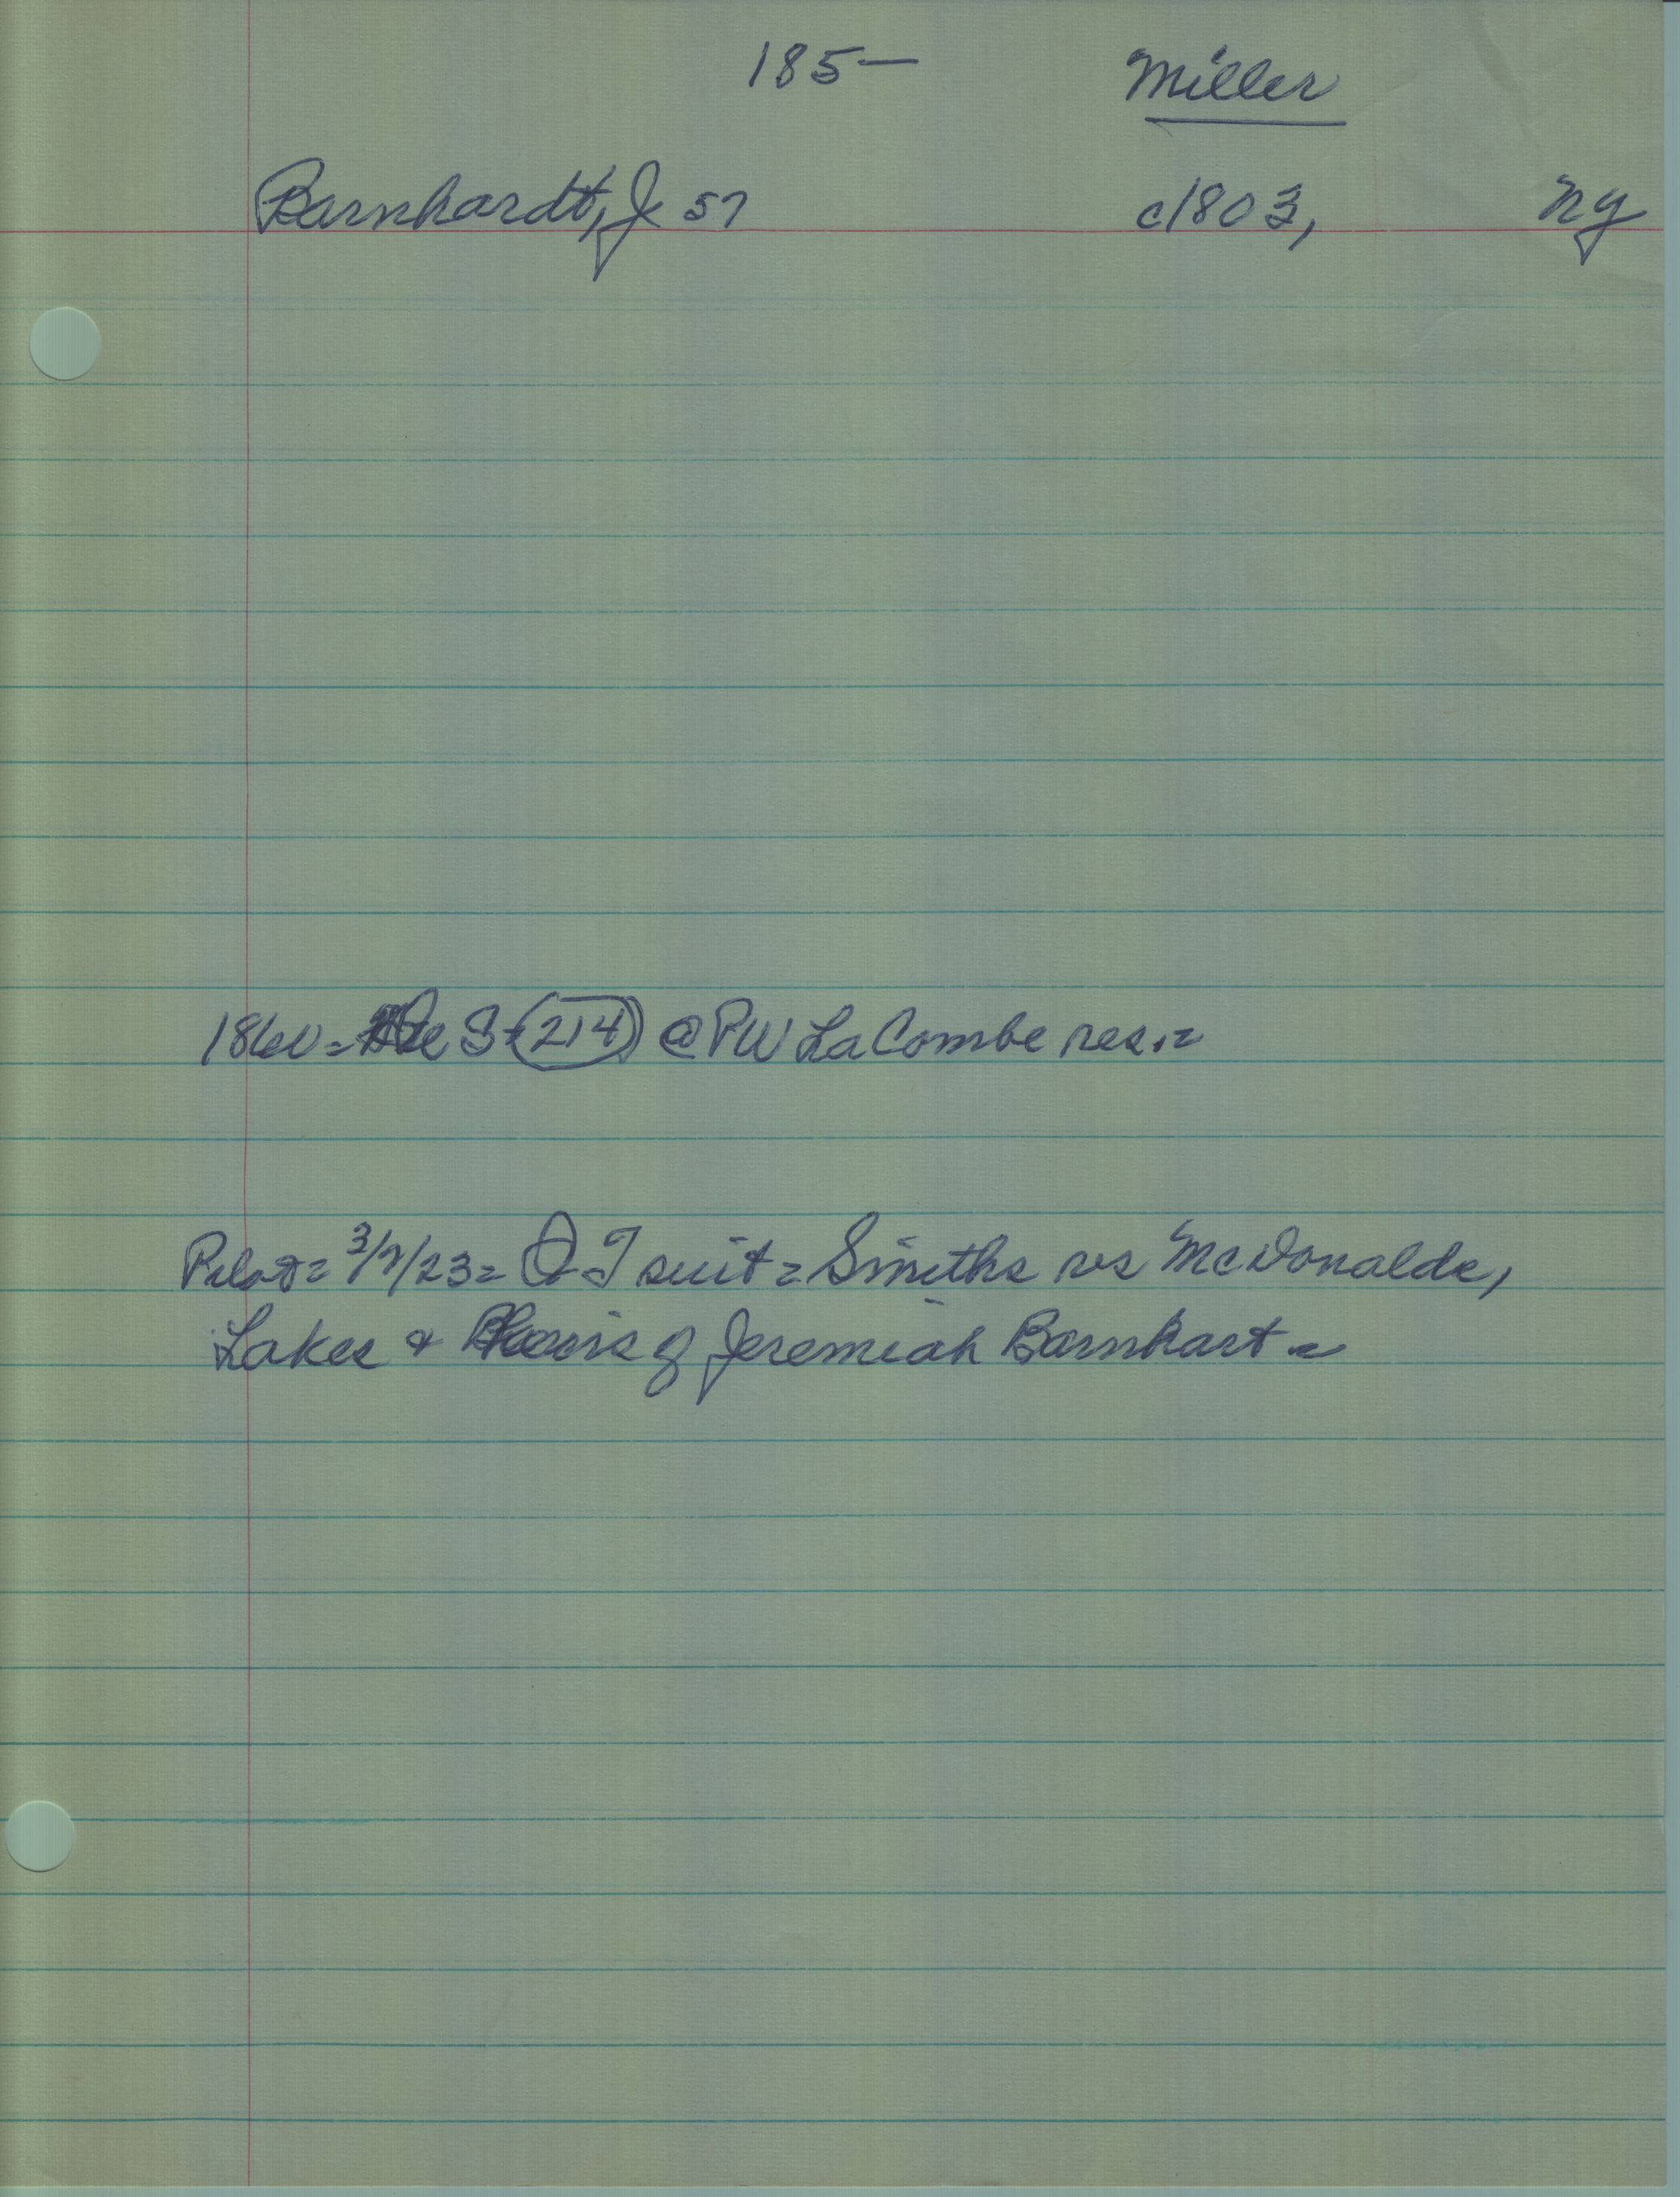 185—
Miller
Barnhardt, J 57 c1803, NY
1860= De S (214) @ PW LaCombe res.=
Pilot= 3/9/23= QT suit= Smiths vs McDonalds,
Lakes & Heirs of Jeremiah Barnhart=